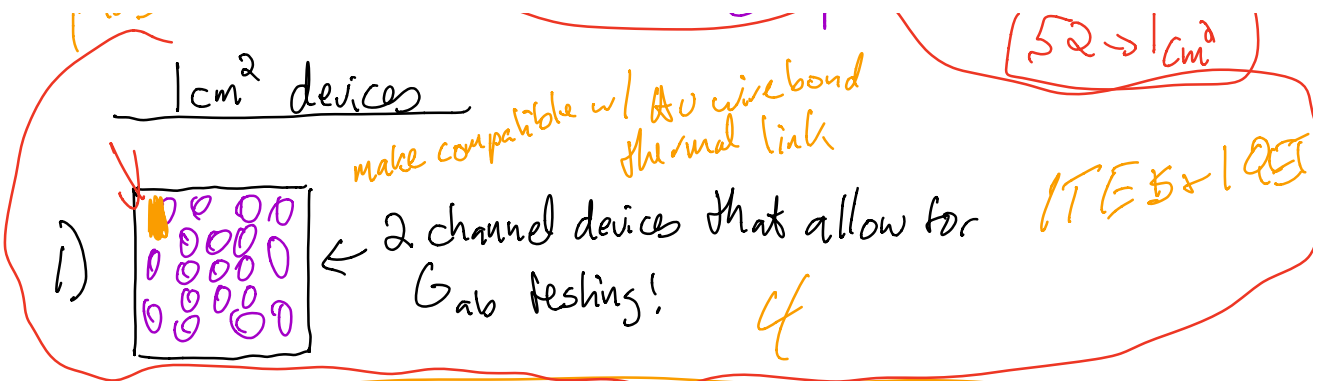 52 → 1cm²
1cm² devices
make compatible w/ Au wirebond
thermal link
1)
← 2 channel devices that allow for
Gab testing!
4